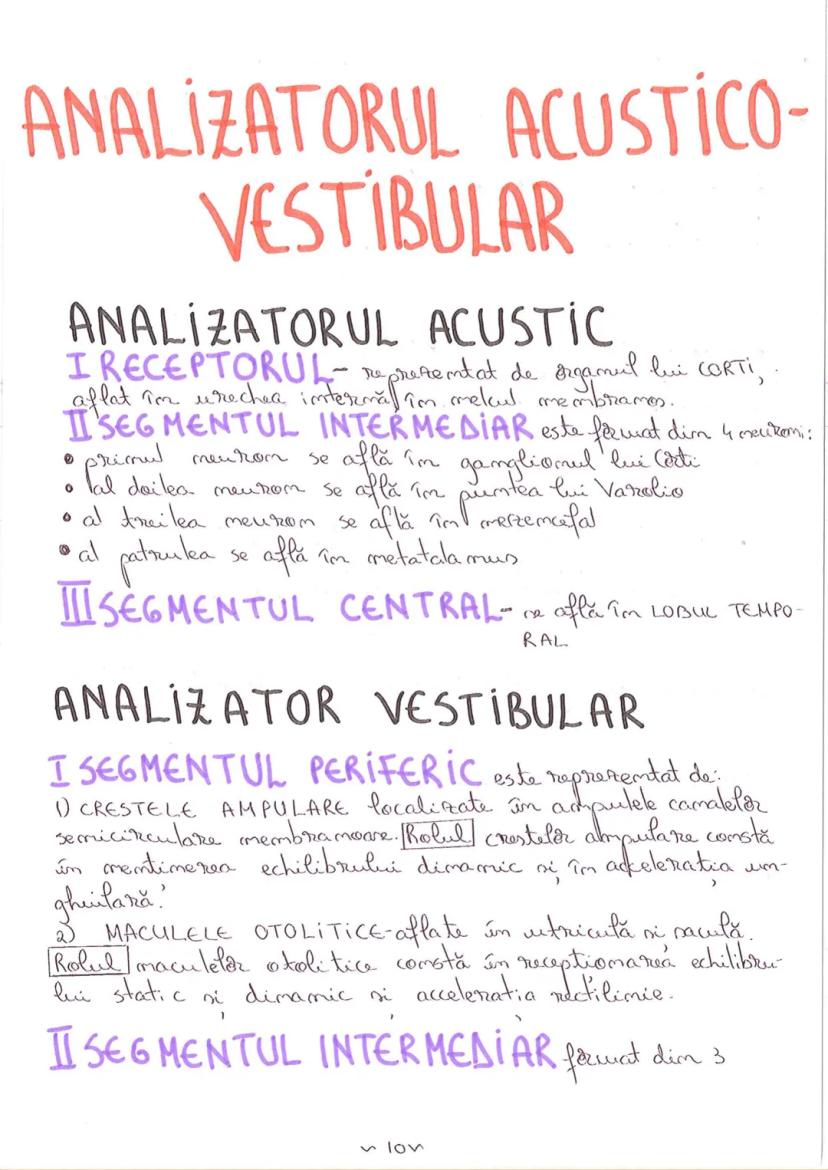 ANALIZATORUL ACUSTICO-
VESTIBULAR
ANALIZATORUL ACUSTIC
I RECEPTORUL- reprezentat de organul lui CORTI,
aflat în urechea internă în melcul membranos.
II SEGMENTUL INTERMEDIAR este format din 4 neuroni:
• primul neuron se află în ganglionul lui Corti
• al doilea neuron se află în puntea lui Varolio
• al treilea neuron se află în mezencefal
• al patrulea se află în metatalamus
III SEGMENTUL CENTRAL- se află în LOBUL TEMPO-
RAL
ANALIZATOR VESTIBULAR
I SEGMENTUL PERIFERIC este reprezentat de:
1) CRESTELE AMPULARE localizate în ampulele canalelor
semicirculare membranoare. Rolul crestelor ampulare constă
în menținerea echilibrului dinamic și în accelerația un-
ghiulară.
2) MACULELE OTOLITICE-aflate în utriculă și saculă.
Rolul maculelor otolitice constă în recepționarea echilibru-
lui static și dinamic și accelerația rectilinie.
II SEGMENTUL INTERMEDIAR format din 3
~ 10 ~